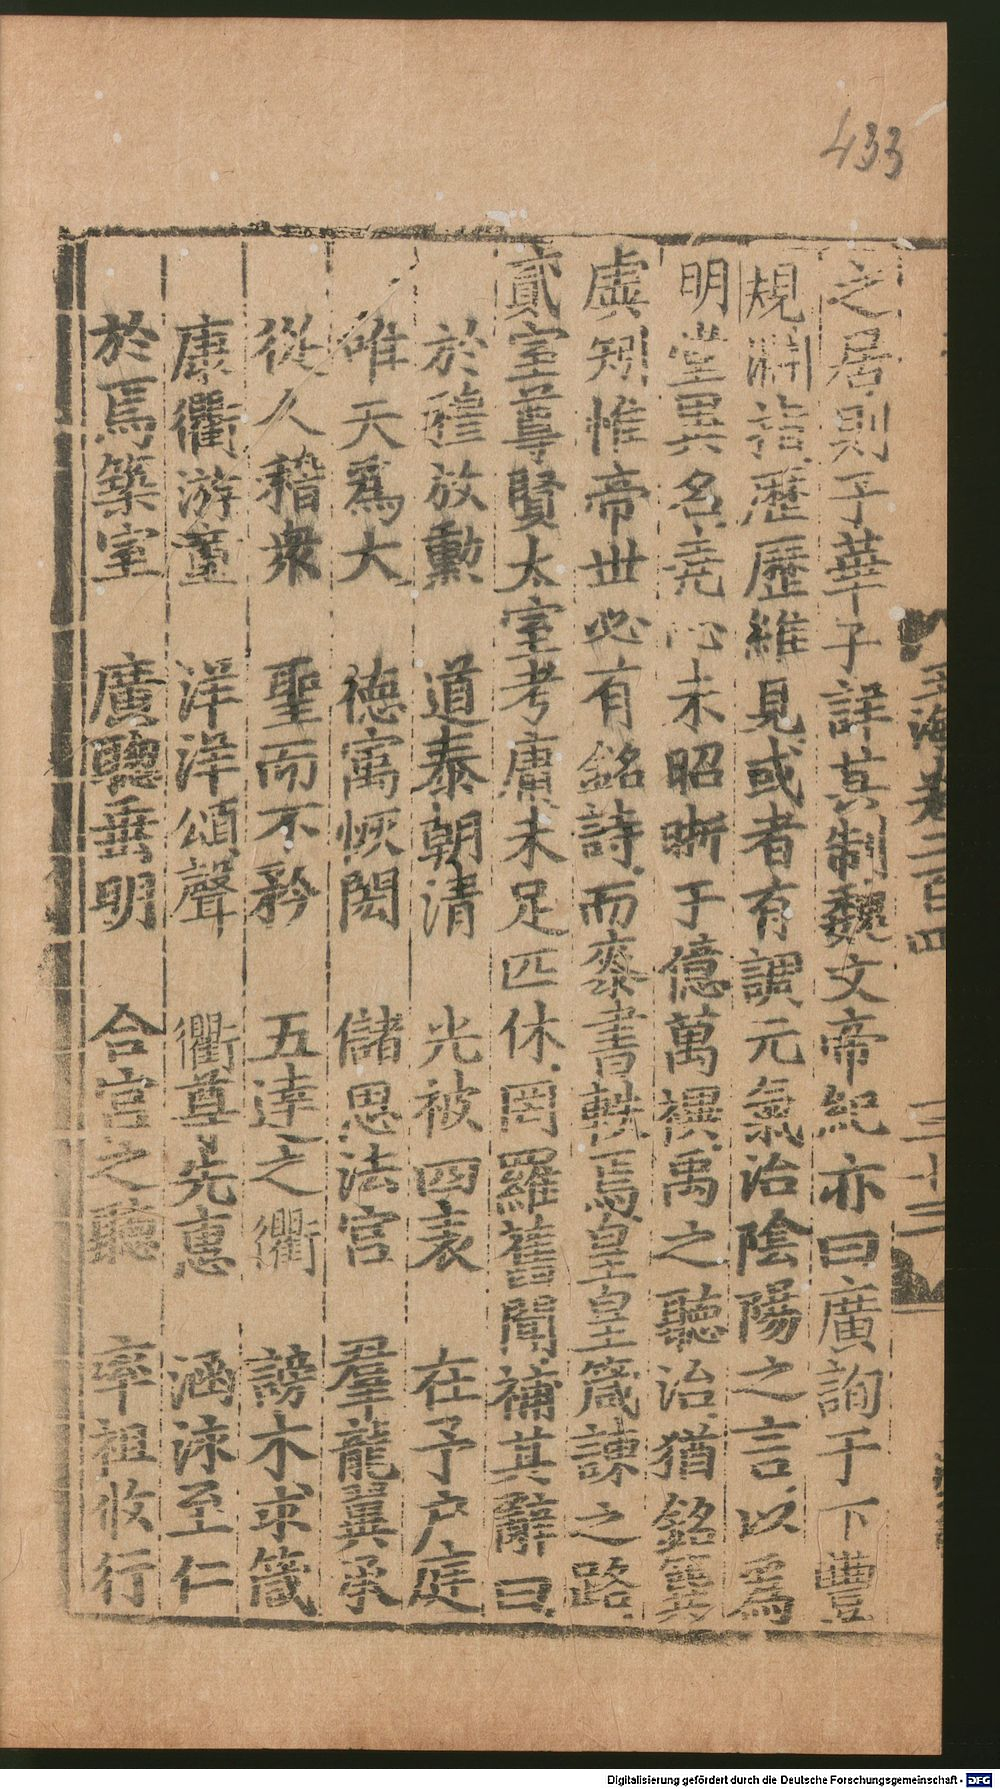 433
之居則子華子詳其制魏文帝紀亦曰廣詢于下豐
規淵指歷歷維見或者有調元氣治陰陽之言以為
明堂異名堯心未昭晰于億萬禩禹之聽治猶銘簨
虡矧惟帝世必有銘詩而泰書軼焉皇皇箴諫之路
貳室尊賢太室考庸未足匹休罔羅舊聞補其辭曰
於穆放勳 道泰朝清 光被四表 在予户庭
唯天為大 德寓恢閎 儲思法宮 羣龍翼承
從人稽衆 聖而不矜 五達之衢 謗木求箴
康衢游童 洋洋頌聲 衢尊先惠 涵泳至仁
於焉築室 廣聽垂明 合宮之聽 率祖攸行
玉海卷二百四 三十三
Digitalisierung gefördert durch die Deutsche Forschungsgemeinschaft - DFG